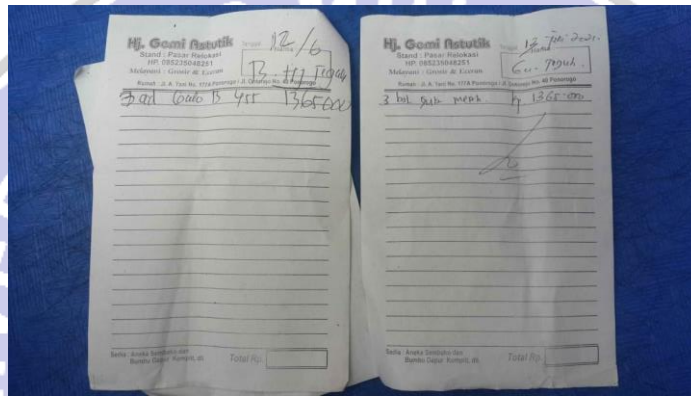 Hj. Gomi Astutik
Stand : Pasar Relokasi
HP. 085235048251
Melayani : Grosir & Eceran
Rumah : Jl. A. Yani No. 177A Ponorogo / Jl.
12/6
B. Hj Teguh
3 Gulo B 455 1365000
Sedia : Aneka Sembako dan
Bumbu Dapur Komplit, dll.
Total Rp.
Hj. Gomi Astutik
Stand : Pasar Relokasi
HP. 085235048251
Melayani : Grosir & Eceran
Rumah : Jl. A. Yani No. 177A Ponorogo / Jl. No. 40 Ponorogo
12
Teguh.
3 gula merah. Rp 1365.000
Sedia : Aneka Sembako dan
Bumbu Dapur Komplit, dll.
Total Rp.